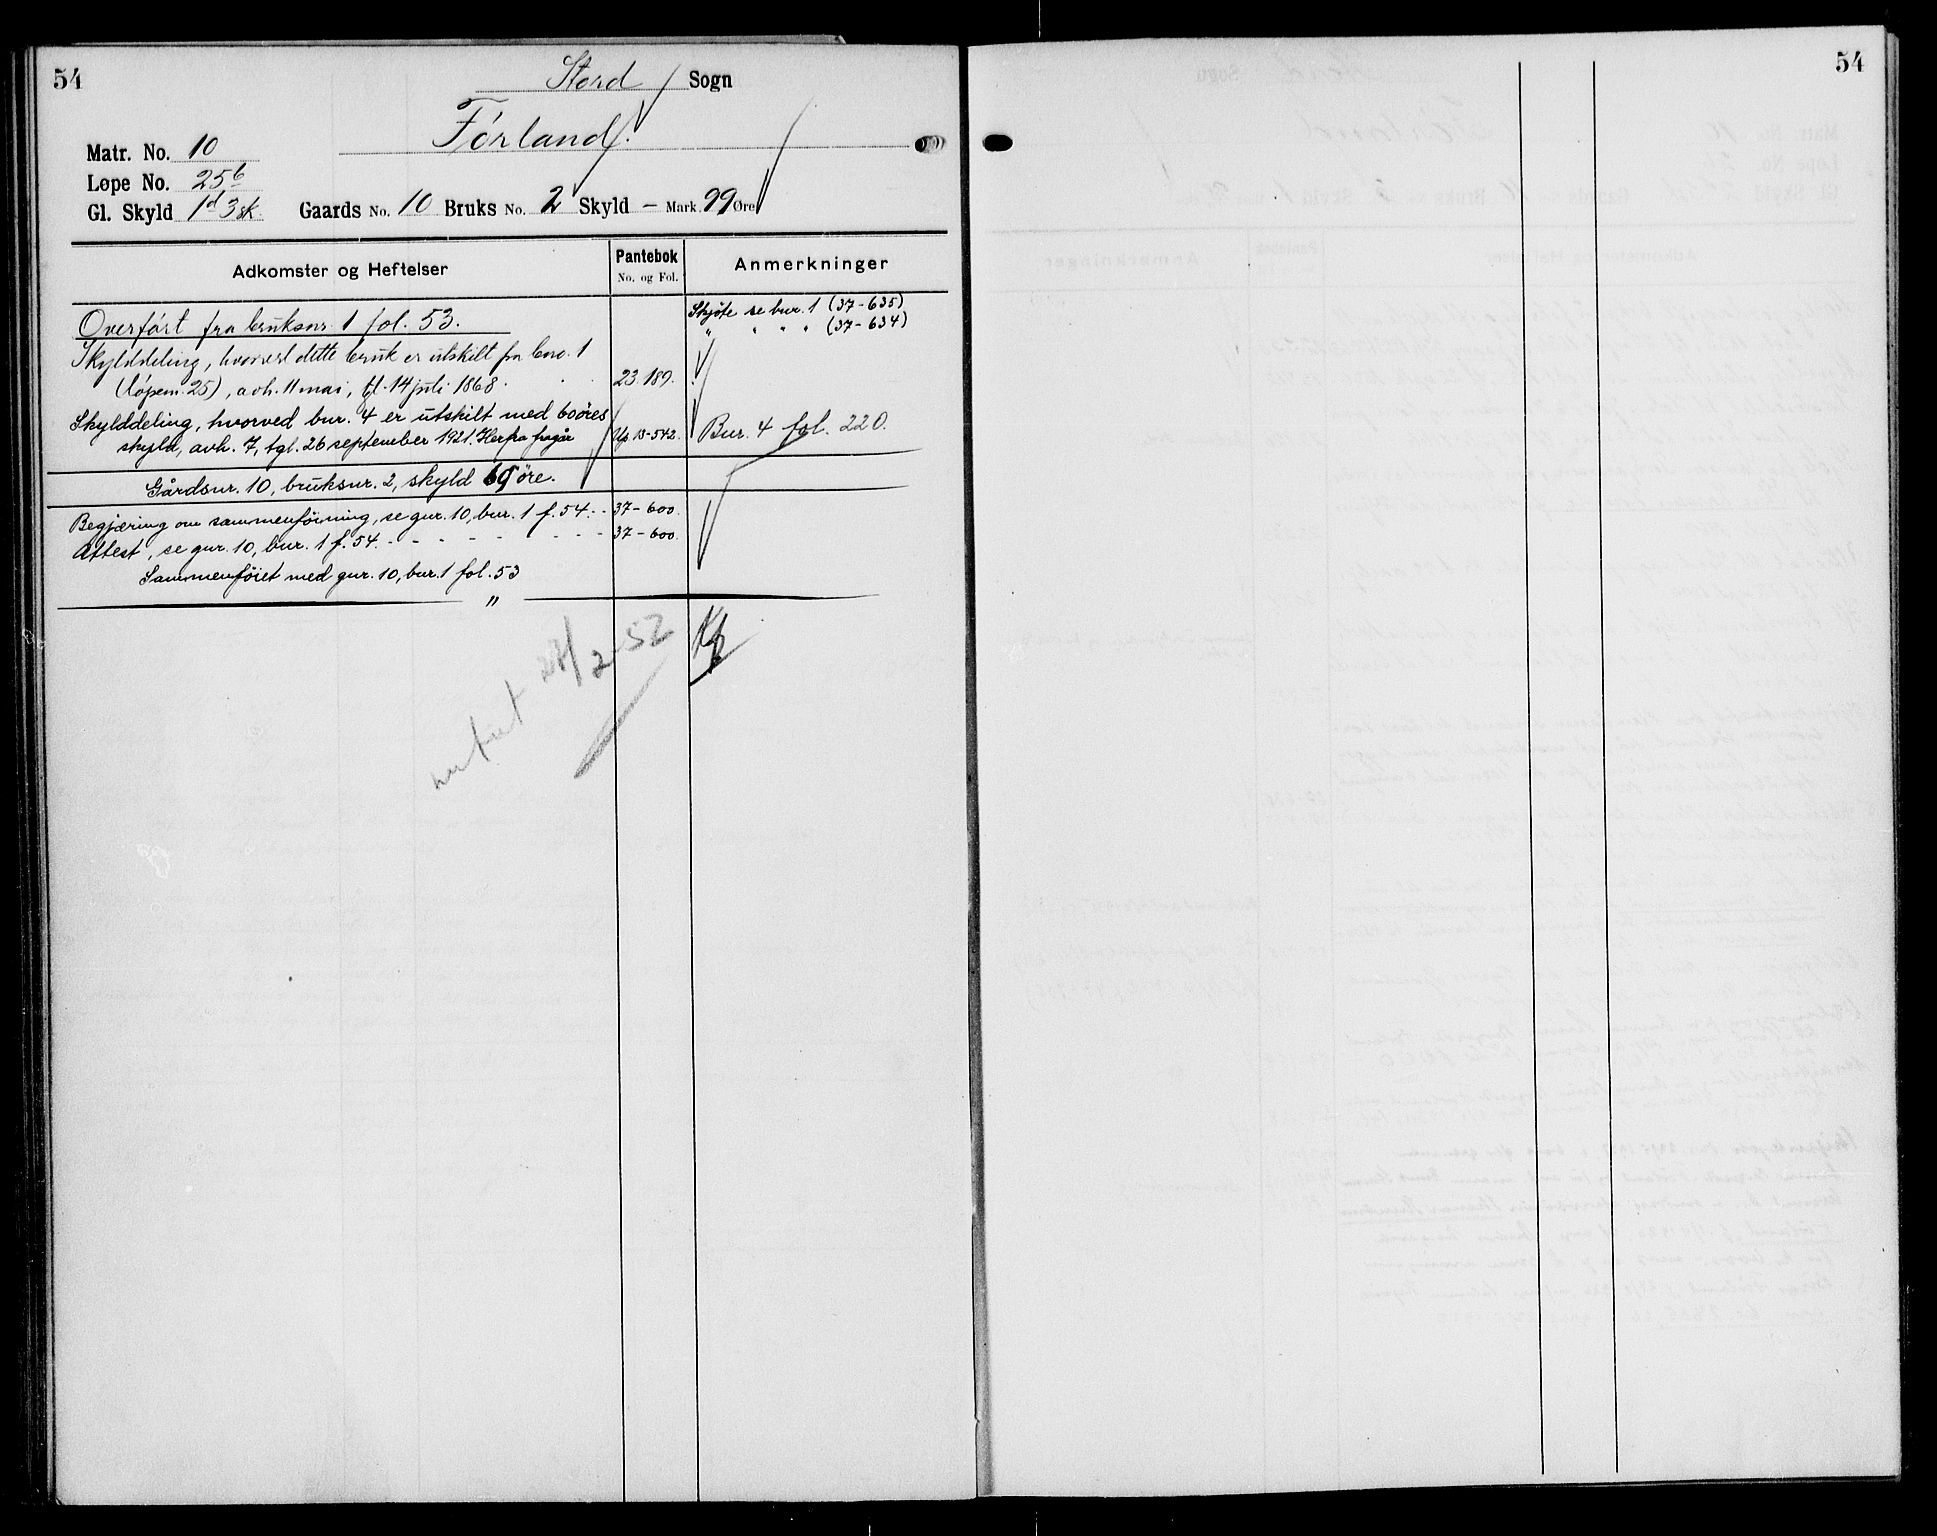 54
Stord Sogn
Förland.
Matr. No. 10
Løpe No. 25b
Gl. Skyld 1d 3sk. Gaards No. 10 Bruks No. 2 Skyld – Mark 99 Øre
Adkomster og Heftelser Pantebok No. og Fol. Anmerkninger
Overført fra bruksnr. 1 fol. 53. Skjøte se bnr. 1 (37-635)
" " " " (37-634)
Skylddeling, hvorved dette bruk er utskilt fra bno. 1
(løpenr. 25), avh. 11 mai, tgl. 14 juli 1868. 23 189.
Skylddeling, hvorved bnr. 4 er utskilt med 60 øres
skyld, avh. 7, tgl. 26 september 1921. Herfra fragår 18-542. Bnr. 4 fol. 220.
Gårdsnr. 10, bruksnr. 2, skyld øre.
Begjæring om sammenføining, se gnr. 10, bnr. 1 f. 54. - - 37-600.
Attest, se gnr. 10, bnr. 1 f. 54. - - - - - - - - 37-600.
Sammenføiet med gnr. 10, bnr. 1 fol. 53
"
/2-52
54